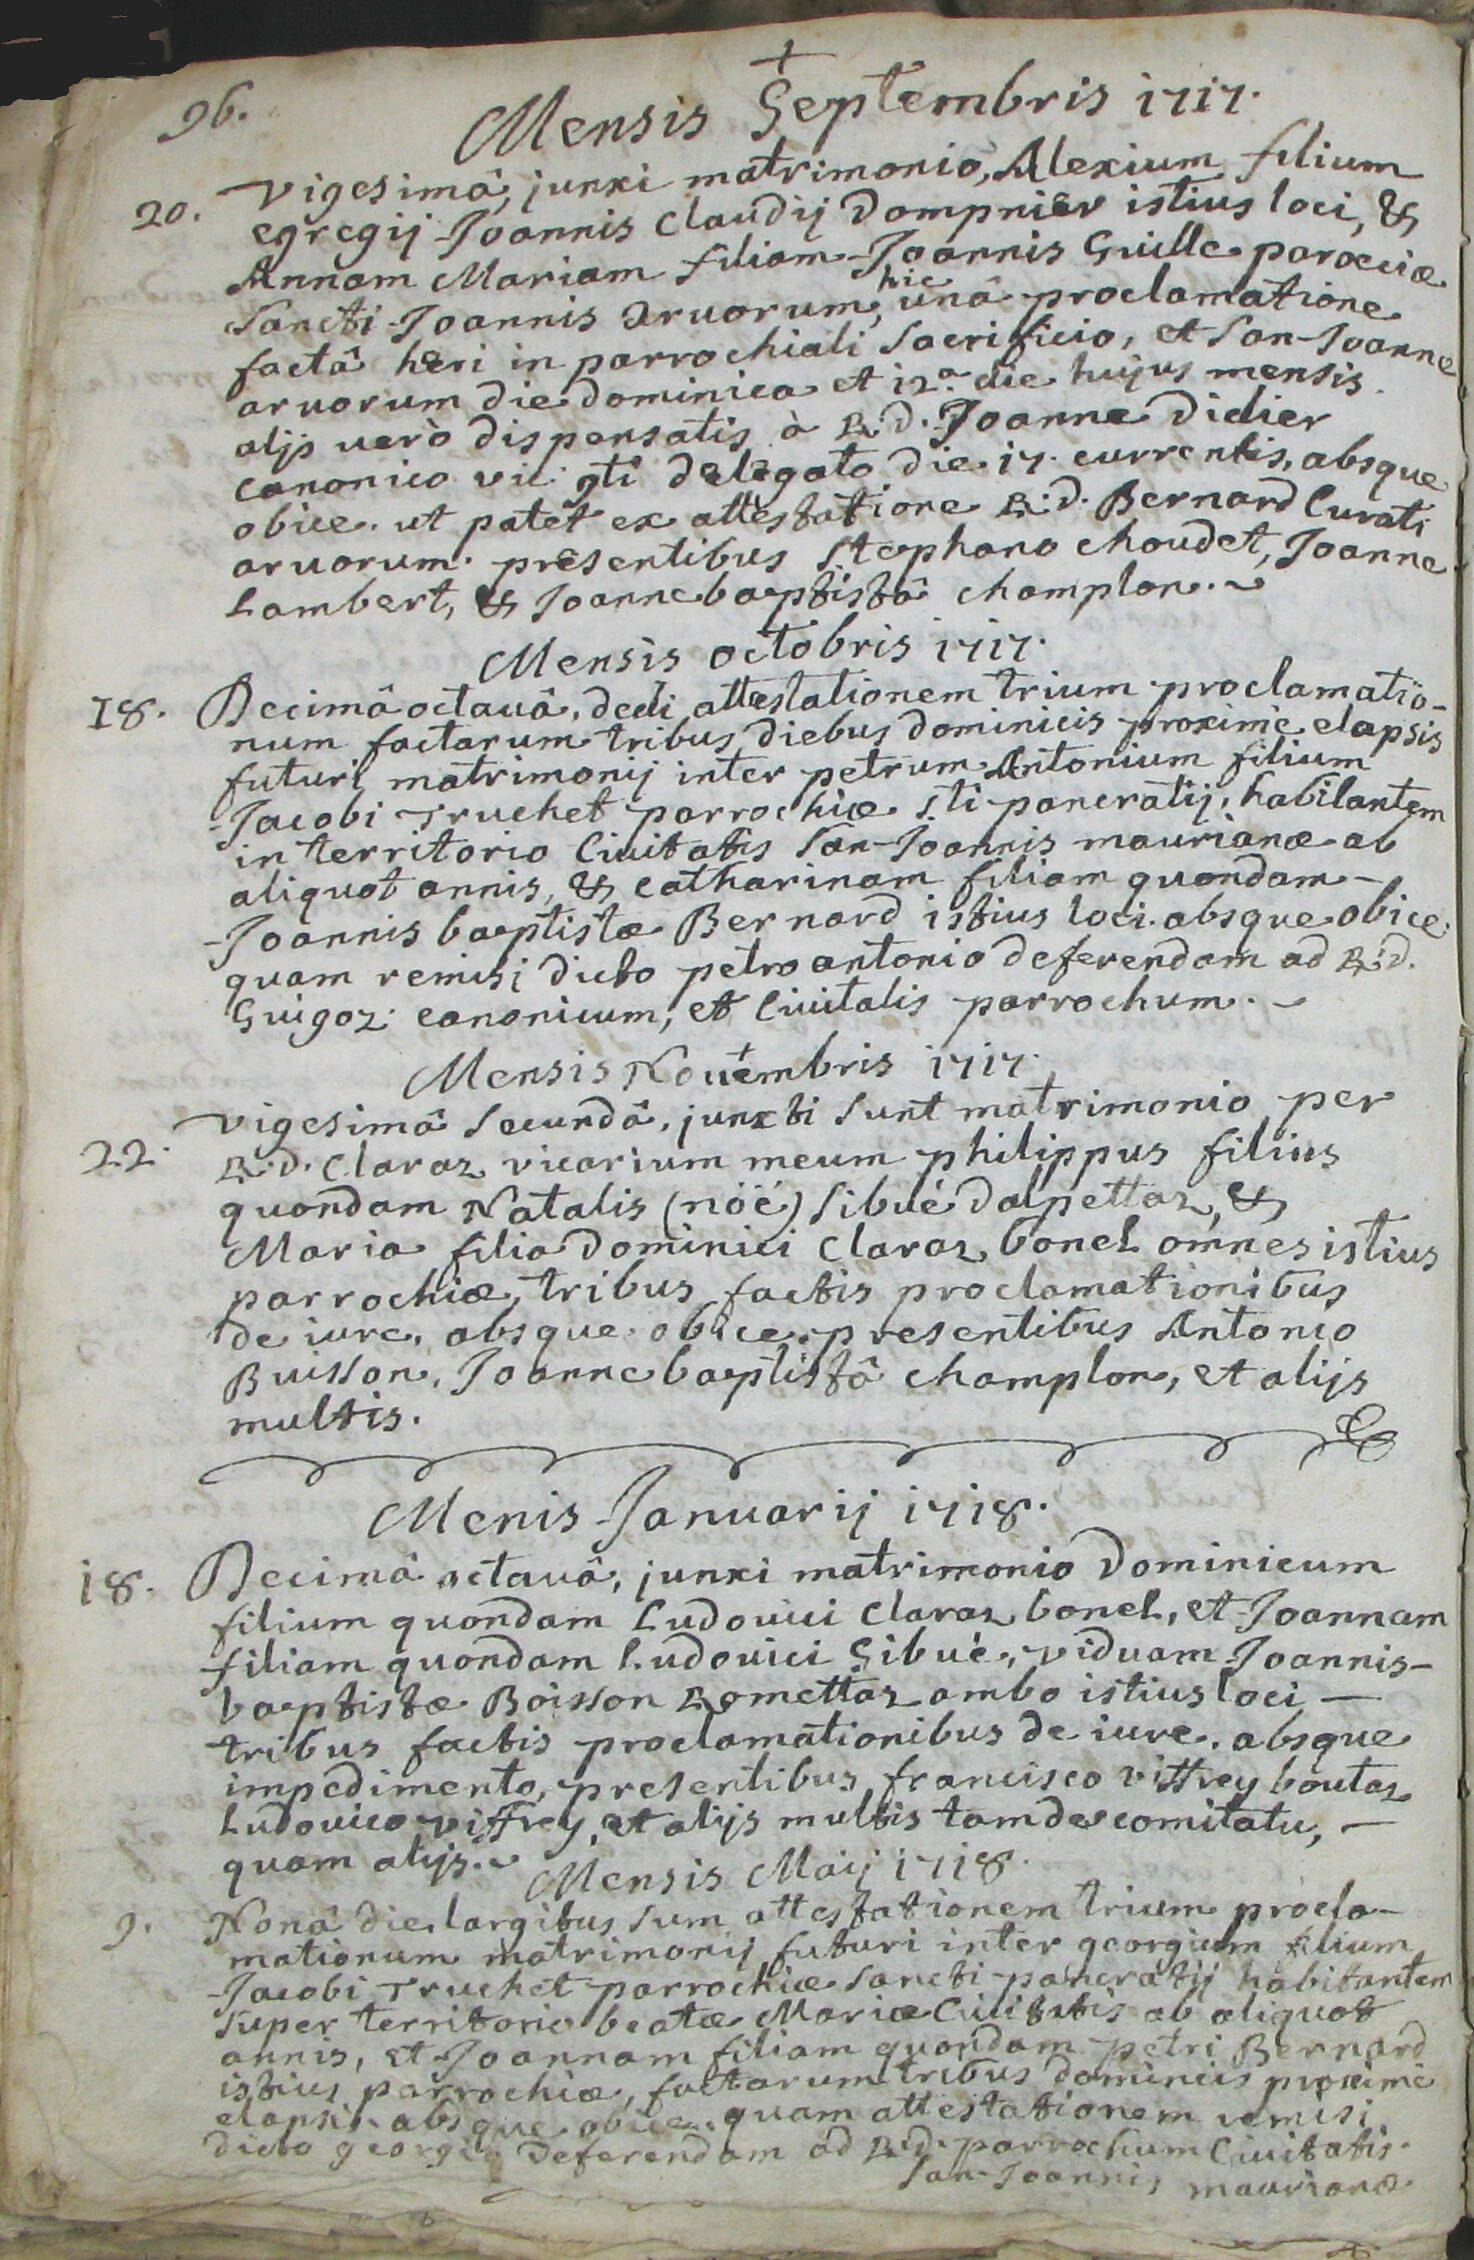 96.
Mensis Septembris 1717.
20. Vigesimâ, junxi matrimonio, Alexium filium
egregij Joannis Claudij Dompnier istius loci, &
Annam Mariam filiam Joannis Guille paroeciæ
Sancti Joannis Aruorum, hic unâ proclamatione
factâ heri in parrochiali Sacrificio, et San-Joanne
aruorum die dominica et 12.a die hujus mensis.
alijs verò dispensatis à R:d. Joanne Didier
canonico vic: gti delegato die 17. currentis, absque
obice. ut patet ex attestatione R:d. Bernard Curati
aruorum. presentibus Stephano choudet, Joanne
Lambert, & Joannebaptistâ champlon.
Mensis octobris 1717.
18. Decimâ octauâ, dedi attestationem trium proclamatio-
num factarum tribus diebus dominicis proximè elapsis
futuri matrimonij inter petrum Antonium filium
Jacobi Truchet parrochiæ sti pancratij, habitantem
in territorio Ciuitatis San-Joannis maurianæ ab
aliquot annis, & catharinam filiam quondam
Joannis baptistæ Bernard istius loci. absque obice.
quam remisi dicto petro antonio deferendam ad R:d.
Guigoz canonicum, et Ciuitatis parrochum.
Mensis Nouembris 1717.
22. Vigesimâ Secundâ, junxti Sunt matrimonio per
R:d. Claraz vicarium meum philippus filius
quondam Natalis (nöé) Sibué dalpettaz, &
Maria filia Dominici Claraz bonel omnes istius
parrochiæ, tribus factis proclamationibus
de iure, absque obice. presentibus Antonio
Buisson, Joannebaptistâ champlon, et alijs
multis.
Menis Januarij 1718.
18. Decimâ octauâ, junxi matrimonio Dominicum
filium quondam Ludouici Claraz bonel, et Joannam
filiam quondam Ludouici Sibué, viduam Joannis-
baptistæ Boisson Romettaz ambo istius loci
tribus factis proclamationibus de iure, absque
impedimento, presentibus francisco viffrey boutaz
Ludouico viffrey, et alijs multis tam de comitatu,
quam alijs.
Mensis Maij 1718.
9. Nonâ die largitus sum attestationem trium procla-
mationum matrimonij futuri inter georgium filium
Jacobi Truchet parrochiæ Sancti pancratij habitantem
Super territorio beatæ Mariæ Ciuitatis ab aliquot
annis, et Joannam filiam quondam petri Bernard
istius parrochiæ, factarum tribus dominicis proximè
elapsis. absque obice. quam attestationem remisi
dicto georgio deferendam ad R:d. parrochum Ciuitatis
San-Joannis maurianæ